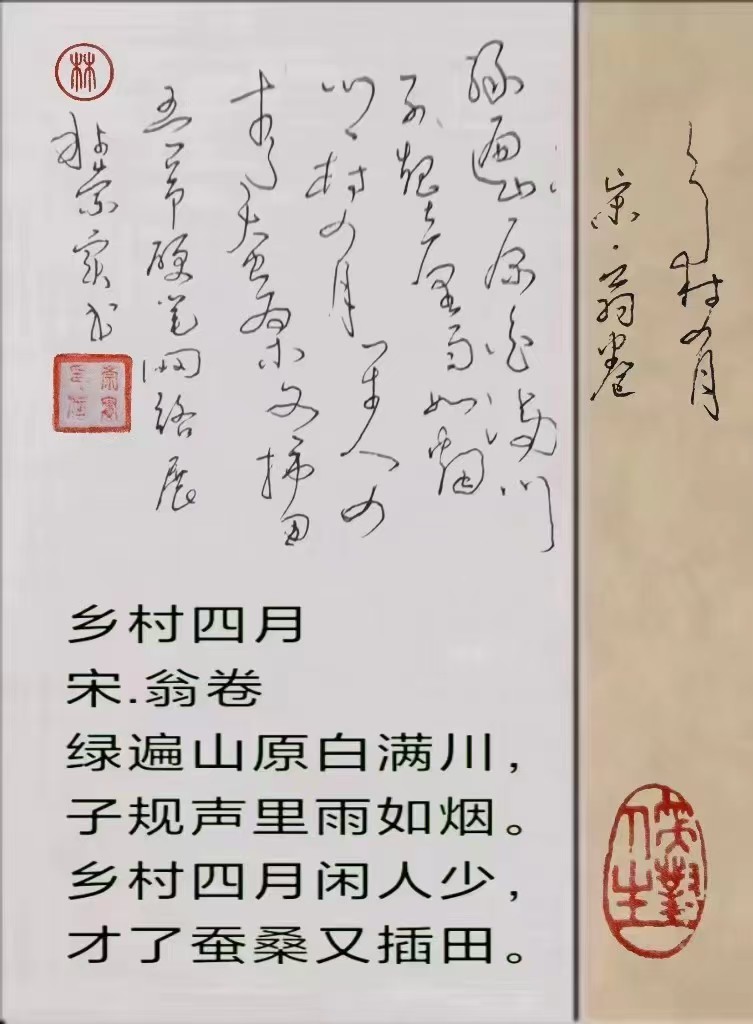 乡村四月
宋·翁卷
绿遍山原白满川
子规声里雨如烟
乡村四月闲人少
才了蚕桑又插田
五一节硬笔网络展
林
笑对人生
乡村四月
宋.翁卷
绿遍山原白满川，
子规声里雨如烟。
乡村四月闲人少，
才了蚕桑又插田。